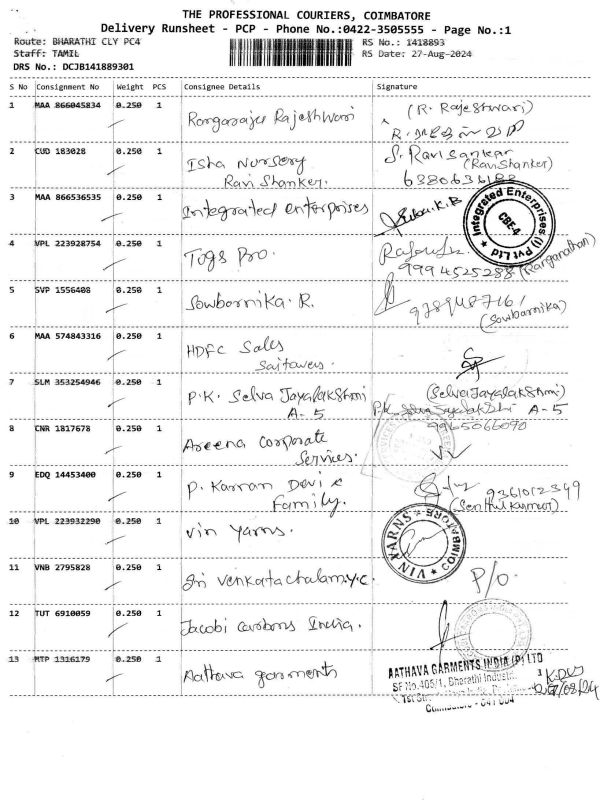 THE PROFESSIONAL COURIERS, COIMBATORE
Delivery Runsheet - PCP - Phone No.:0422-3505555 - Page No.:1
Route: BHARATHI CLY PC4 RS No.: 1418893
Staff: TAMIL RS Date: 27-Aug-2024
DRS No.: DCJB141889301
S No Consignment No Weight PCS Consignee Details Signature
1 MAA 866045834 0.250 1 Rangaraju Rajeshwari (R. Rajeshwari)
2 CUD 183028 0.250 1 Isha Nursery S. Ravisankar
Ravi Shanker. (RaviShanker)
6380636188
3 MAA 866536535 0.250 1 Integrated enterprises
Integrated Enterprises (I) Pvt Ltd
CBE-4
4 VPL 223928754 0.250 1 Togs Pro.
9994525288 (Ranganathan)
5 SVP 1556408 0.250 1 Sowbarnika. R.
(Sowbarnika)
6 MAA 574843316 0.250 1 HDFC Sales
Saitowers.
7 SLM 353254946 0.250 1 P.K. Selva Jayalakshmi (Selva Jayalakshmi)
A-5 P.K. Selva Jayalakshmi A-5
9965066070
8 CNR 1817678 0.250 1 Areena Corporate
Services.
9 EDQ 14453400 0.250 1 P. Karran Devi & 9361012349
Family. (Senthil kumar)
10 VPL 223932290 0.250 1 Vin Yarns.
VIN YARNS COIMBATORE
11 VNB 2795828 0.250 1 Sri Venkatachalam.y.c. P/O.
12 TUT 6910059 0.250 1 Jacobi Carbons India.
13 MTP 1316179 0.250 1 Aathava garments
AATHAVA GARMENTS INDIA (P) LTD
SF No.405/1, Bharathi
Coimbatore - 641 004